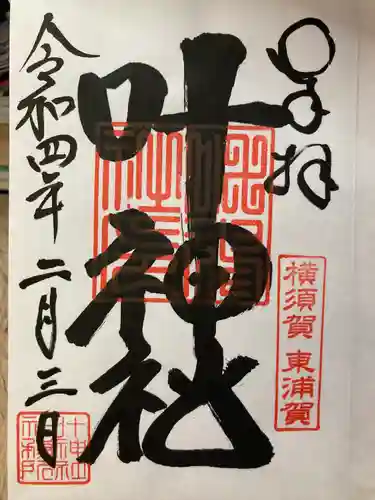 奉拝
叶神社
横須賀 東浦賀
令和四年二月三日